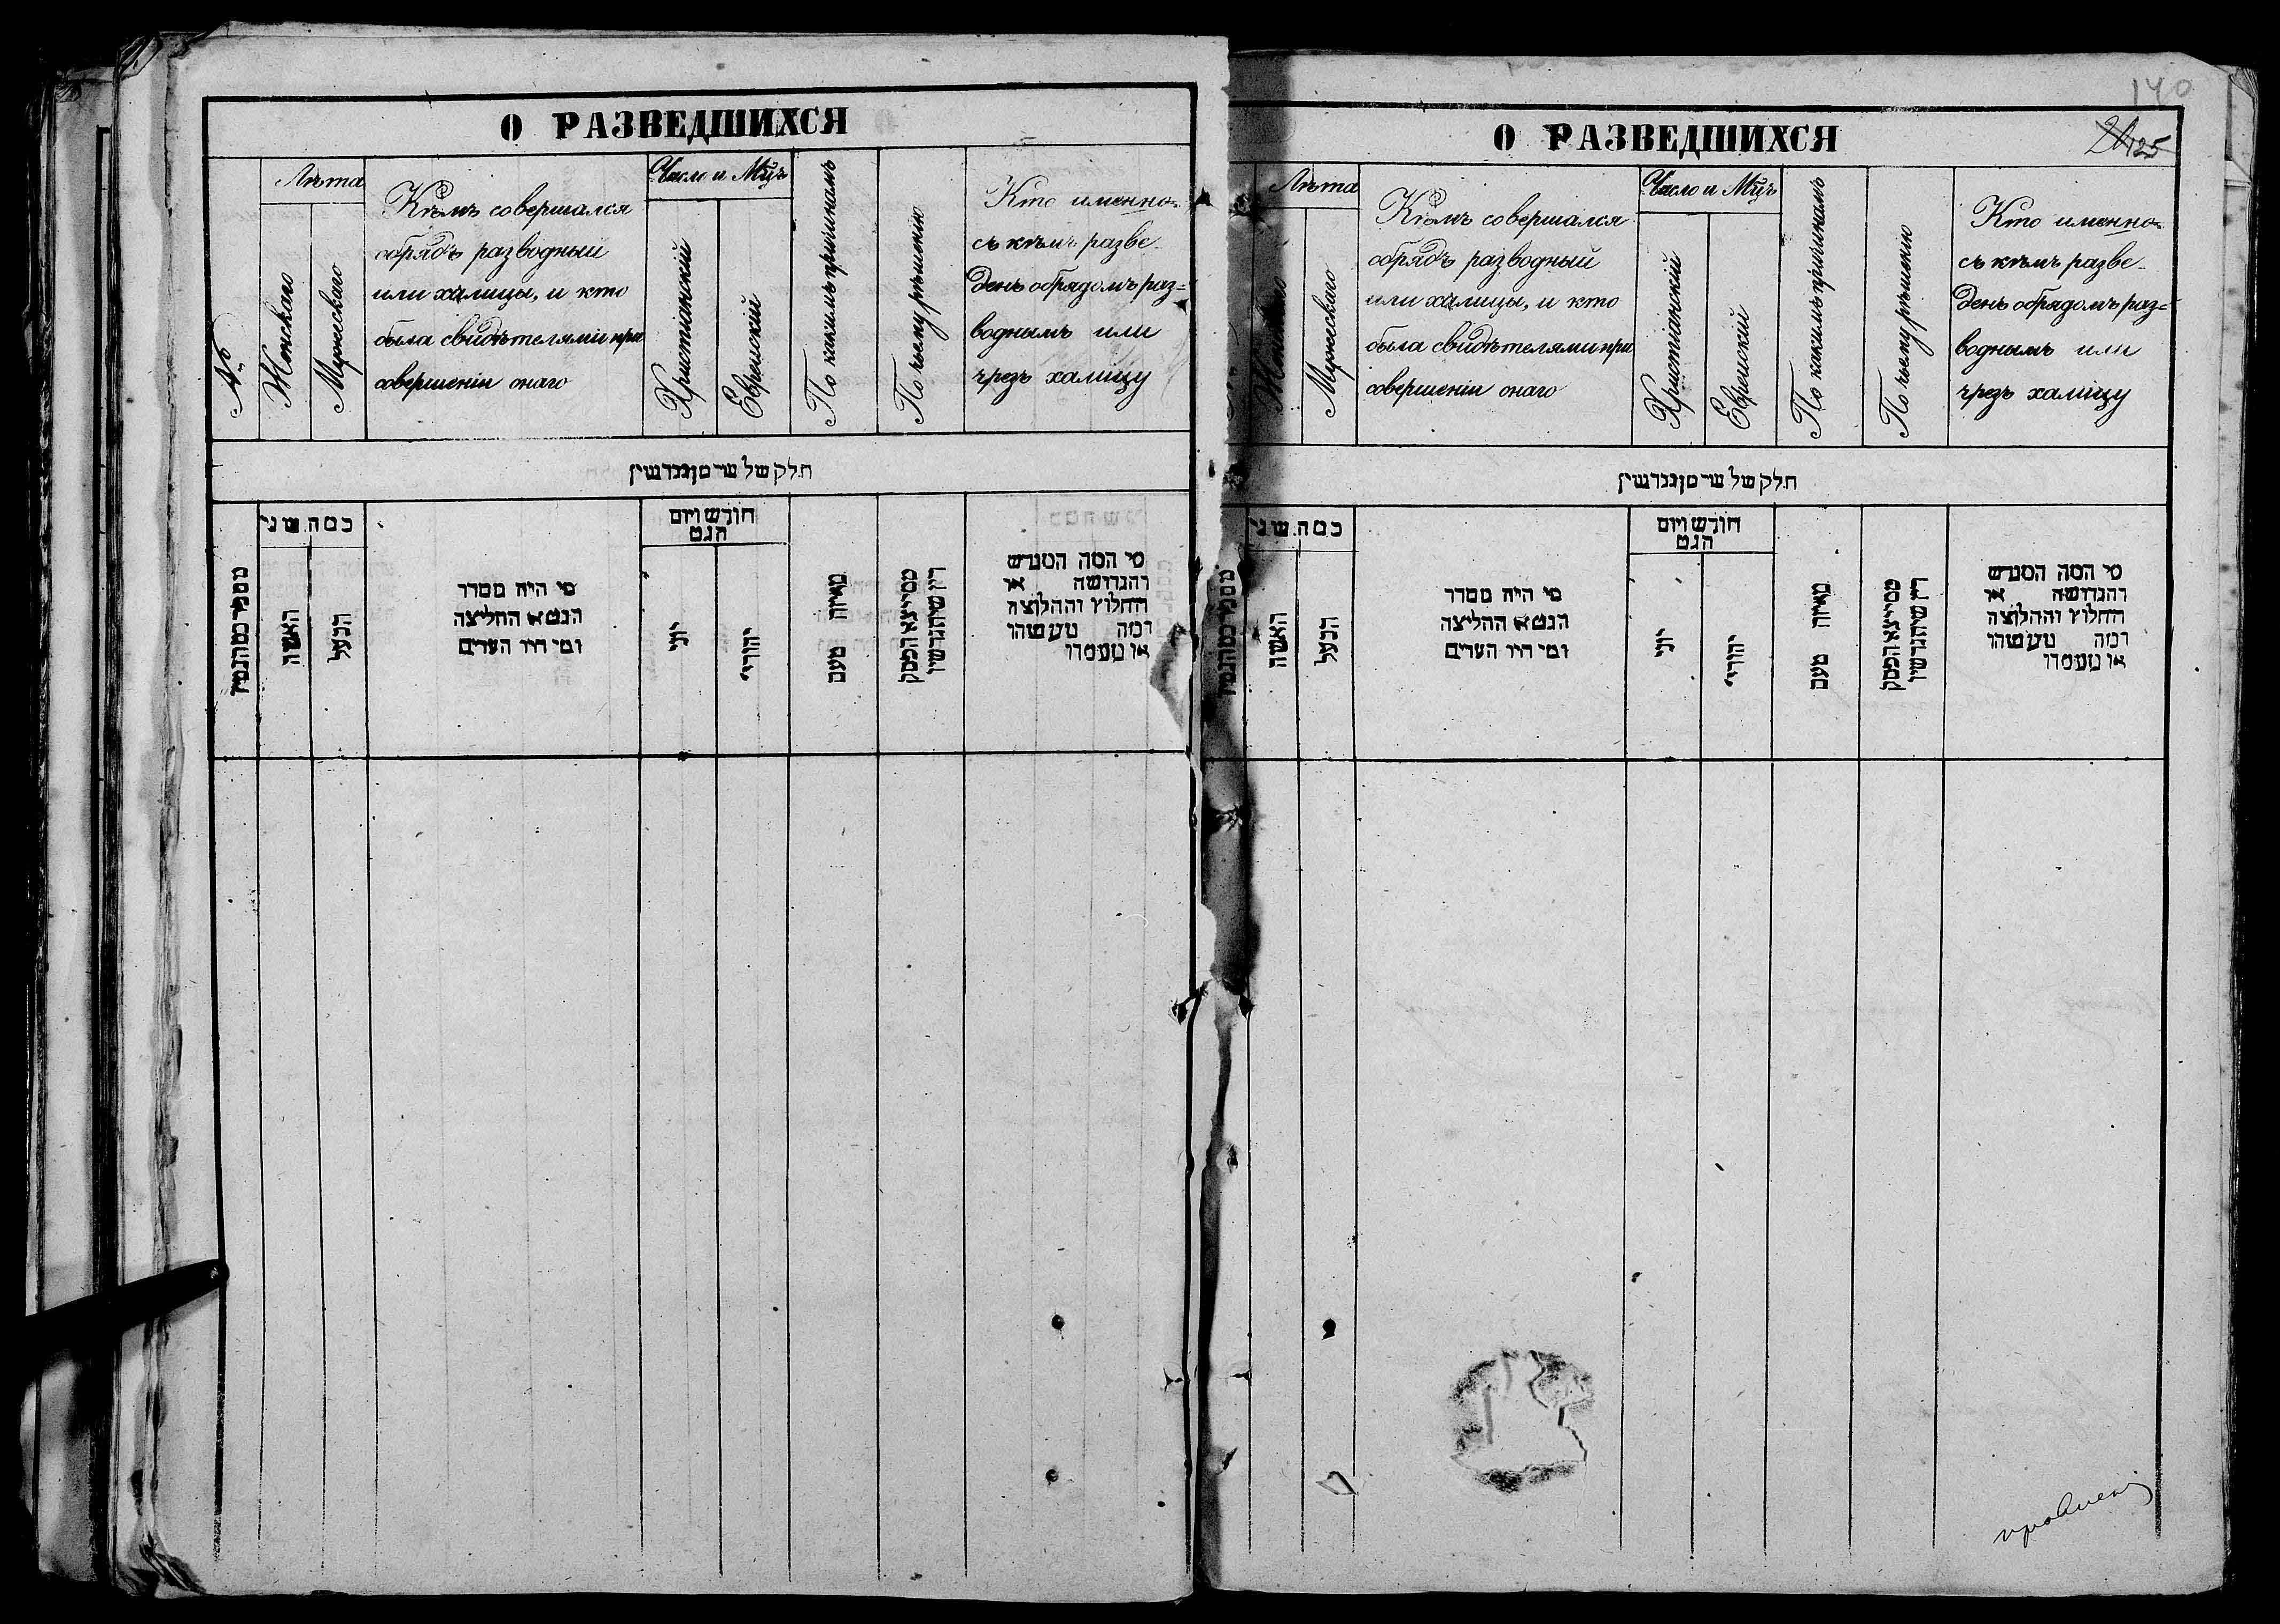 О РАЗВЕДШИХСЯ
№
Лѣта
Женскаго
Мужескаго
Кѣмъ совершался
обрядъ разводный
или халицы, и кто
была свидѣтелями при
совершеніи онаго
Число и Мцъ
Христіанскій
Еврейскій
По какимъ причинамъ
По чьему рѣшенію
Кто именно
съ кѣмъ разве-
денъ обрядомъ раз=
воднымъ или
чрезъ халицу
חלק של שי מן גרושין
כמה שני
האשה
הבעל
מי היה מסדר
הגט או החליצה
ומי היו העדים
חודש ויום
הגט
יוני
יהודי
מאיזה טעם
ממי יצא הפסק
דין שיתגרשו
מי המה המגרש
והגרושה או
החלוץ והחלוצה
ומה מעשהו
או מעמדו
140
125
О РАЗВЕДШИХСЯ
Лѣта
Женскаго
Мужескаго
Кѣмъ совершался
обрядъ разводный
или халицы, и кто
была свидѣтелями при
совершеніи онаго
Число и Мцъ
Христіанскій
Еврейскій
По какимъ причинамъ
По чьему рѣшенію
Кто именно
съ кѣмъ разве-
денъ обрядомъ раз=
воднымъ или
чрезъ халицу
חלק של שי מן גרושין
כמה שני
האשה
הבעל
מי היה מסדר
הגט או החליצה
ומי היו העדים
חודש ויום
הגט
יוני
יהודי
מאיזה טעם
ממי יצא הפסק
דין שיתגרשו
מי המה המגרש
והגרושה או
החלוץ והחלוצה
ומה מעשהו
או מעמדו